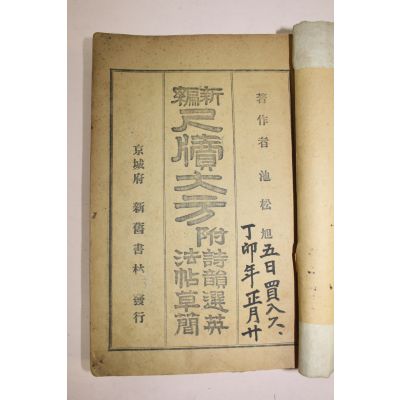 著作者 池松旭
丁卯年正月廿
五日買入ス、
新編
尺牘大方
附
詩韻選英
法帖草簡
京城府 新舊書林 發行